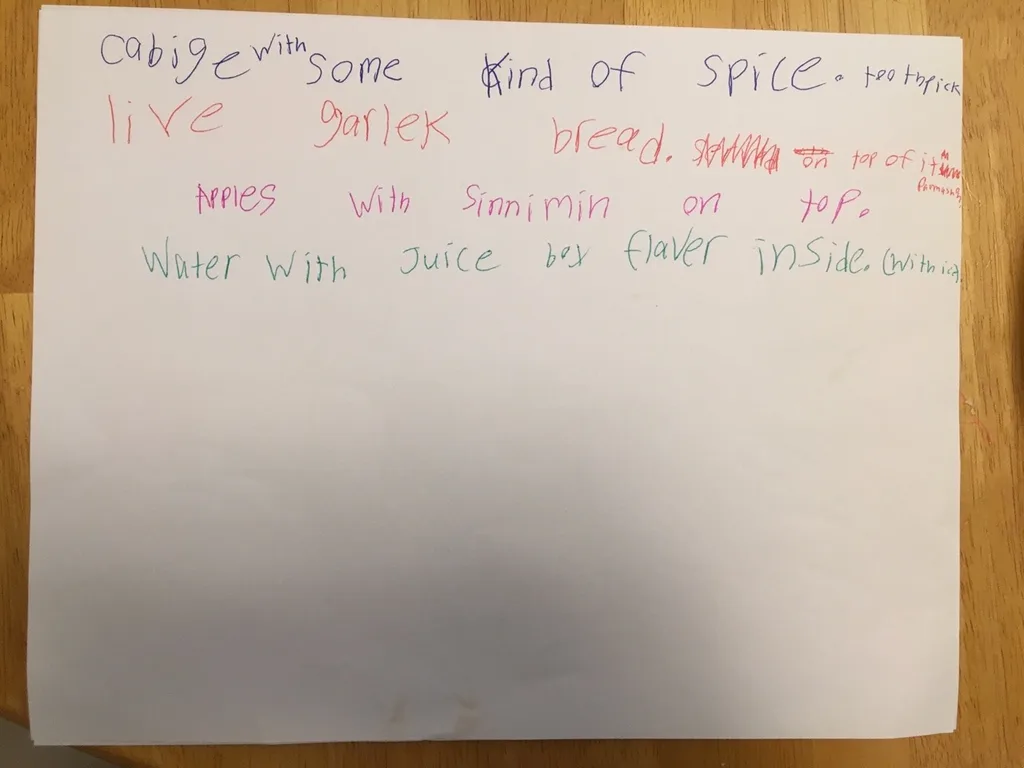 cabige with some kind of spice. toothpick
live garlek bread. on top of it
Apples with sinnimin on top.
Water with Juice box flaver inside. (with ice).